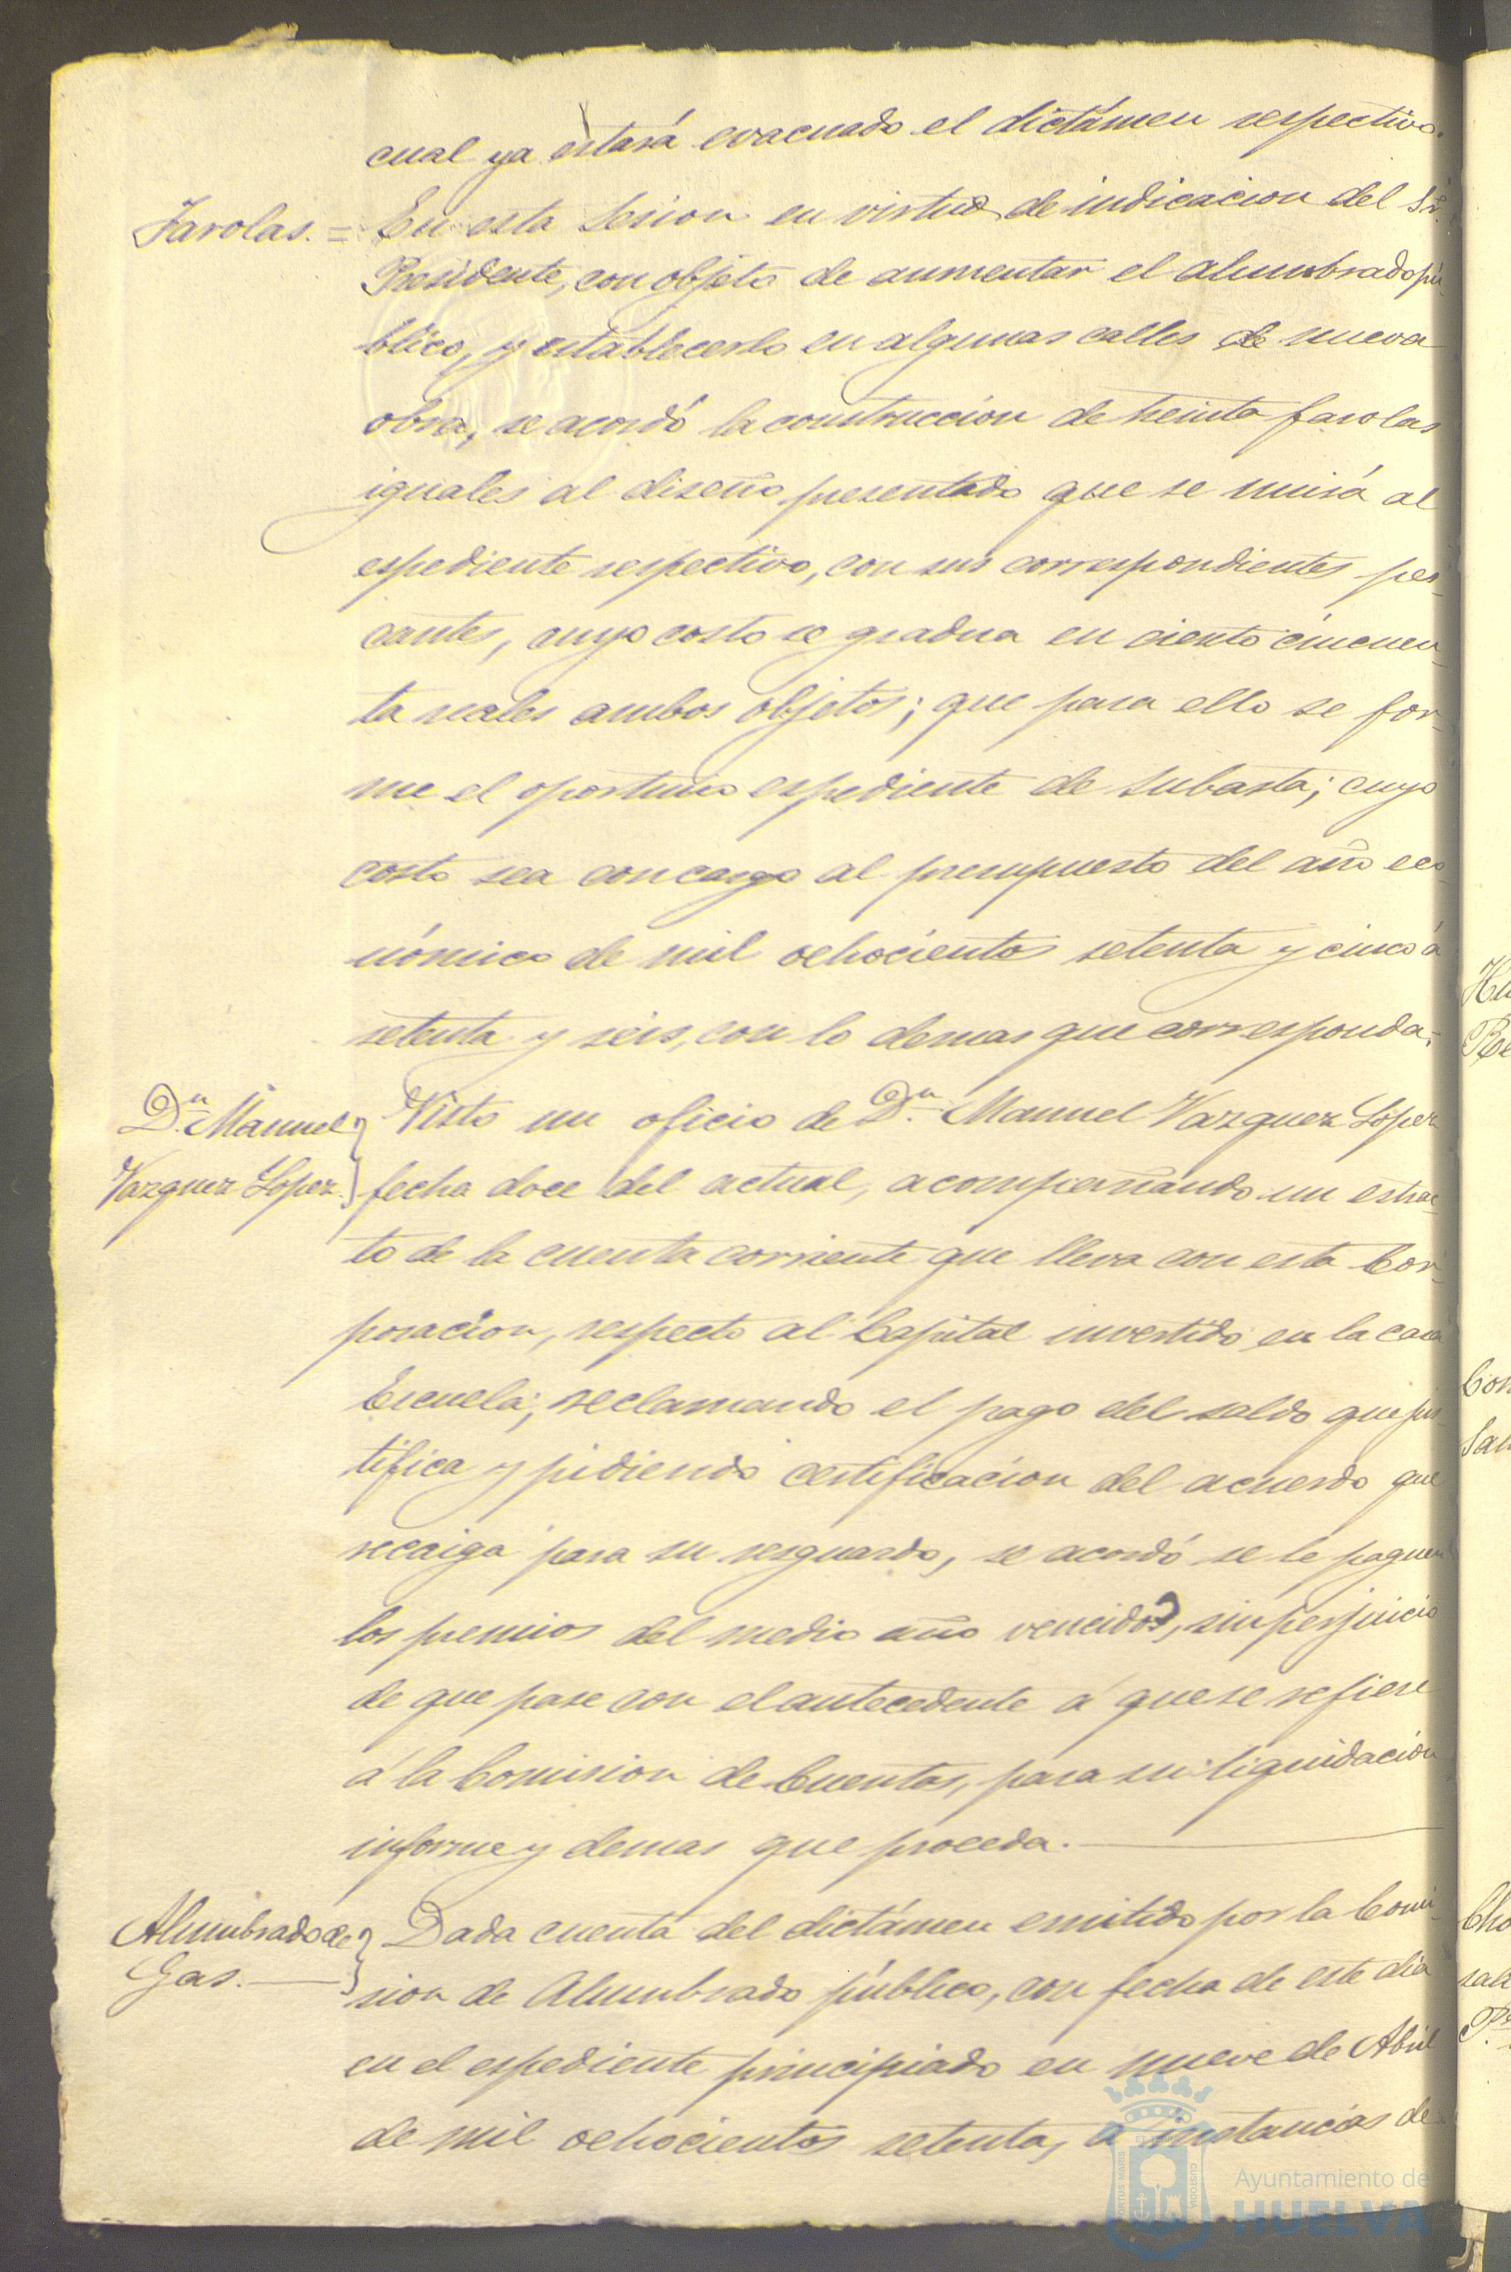 cual ya estará evacuado el dictámen respectivo.
Farolas. = En esta sesion en virtud de indicacion del Sr.
Presidente, con objeto de aumentar el alumbrado pú
blico, y establecerlo en algunas calles de nueva
obra, se acordó la construccion de treinta farolas
iguales al diseño presentado que se unirá al
espediente respectivo, con sus correspondientes pes-
cantes, cuyo costo se gradua en ciento cincuen-
ta reales ambos objetos; que para ello se for-
me el oportuno espediente de subasta; cuyo
costo sea con cargo al presupuesto del año eco-
nómico de mil ochocientos setenta y cinco á
setenta y seis, con lo demas que corresponda.
Dn. Manuel
Vazquez Lopez.
Visto un oficio de Dn. Manuel Vazquez Lopez
fecha doce del actual, acompañando un estrac-
to de la cuenta corriente que lleva con esta Cor-
poracion, respecto al Capital invertido en la casa
Escuela; reclamando el pago del saldo que jus-
tifica y pidiendo certificacion del acuerdo que
recaiga para su resguardo, se acordó se le paguen
los premios del medio año vencido, sin perjuicio
de que pase con el antecedente á que se refiere
á la Comision de Cuentas, para su liquidacion
informe y demas que proceda.
Alumbrado de
Gas.
Dada cuenta del dictámen emitido por la Comi-
sion de Alumbrado público, con fecha de este dia
en el espediente principiado en nueve de Abril
de mil ochocientos setenta, á instancias de
Hu
Re
Con
Sal
Cho
sal
PORTUS MARIS
CUSTODIA
Ayuntamiento de
HUELVA